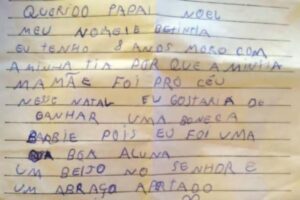 QUERIDO PAPAI NOEL
MEU NOME É BETINHA
EU TENHO 8 ANOS MORO COM
A MINHA TIA POR QUE A MINHA
MAMÃE FOI PRO CÉU
NESSE NATAL EU GOSTARIA DE
GANHAR UMA BONECA
BARBIE POIS EU FUI UMA
BOA ALUNA
UM BEIJO NO SENHOR E
UM ABRAÇO APERTADO